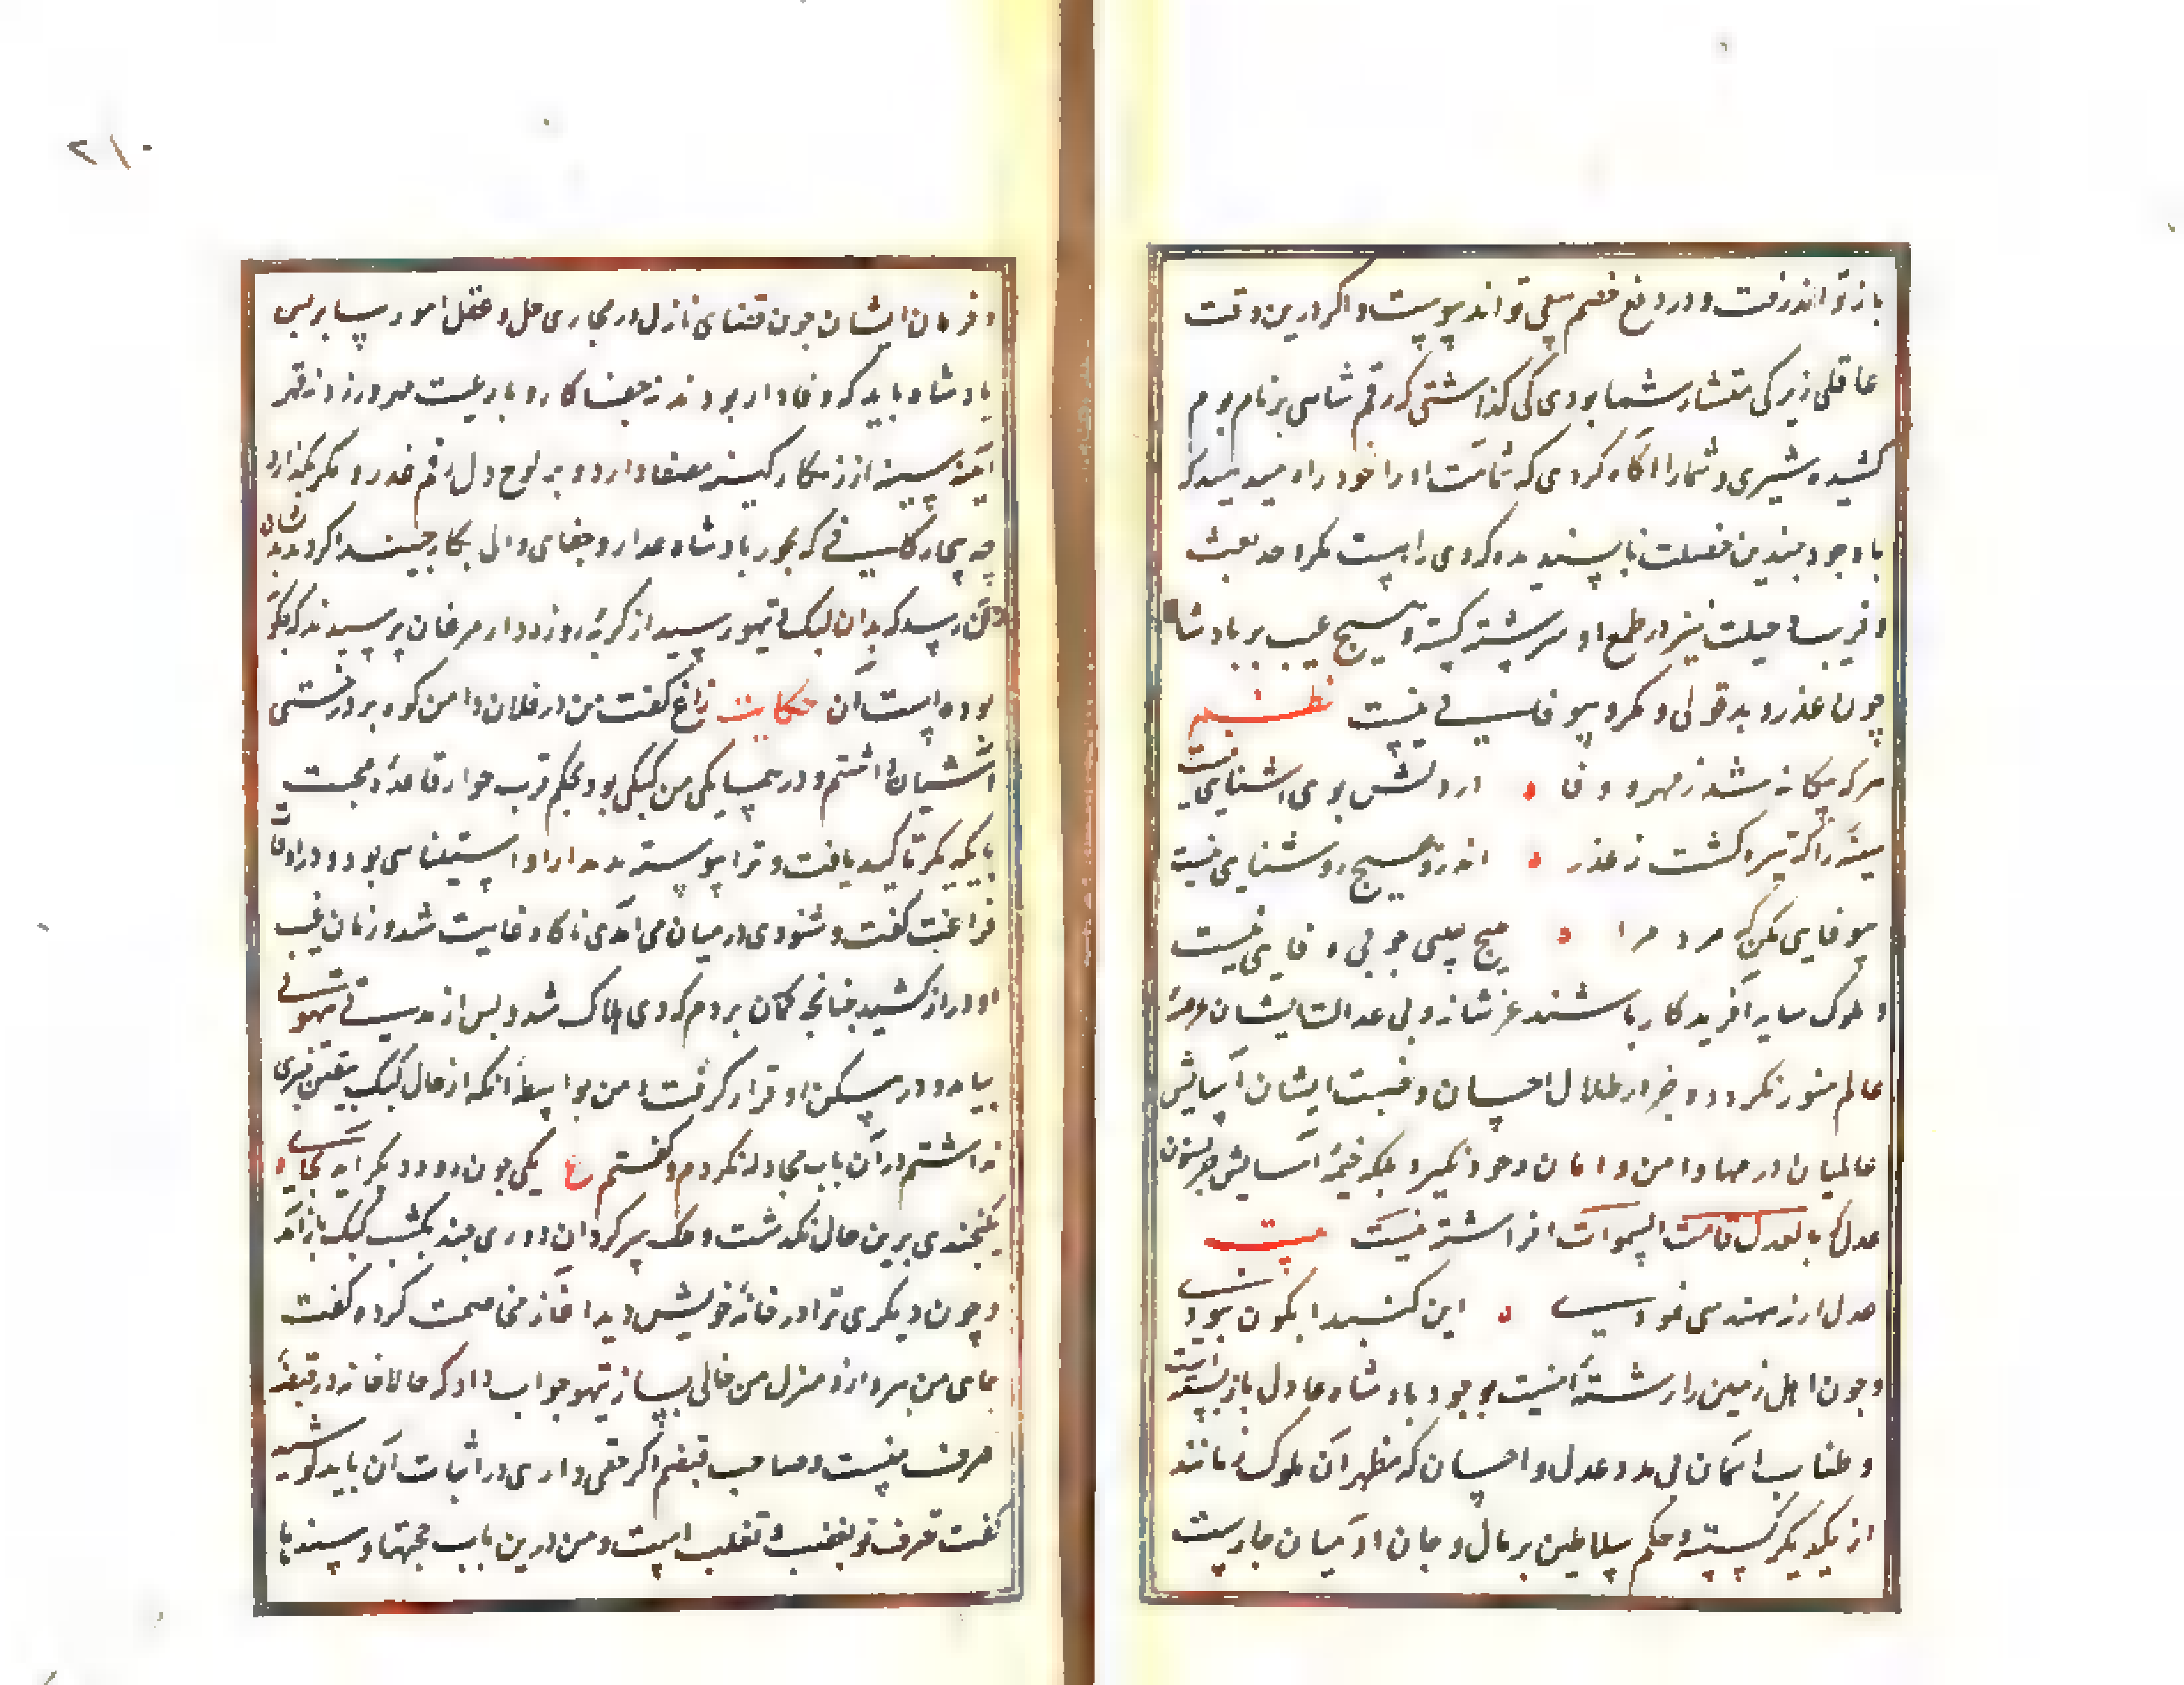 باز تواند رفت و در دفع خصم سعی تواند پیوست و اکر درین وقت
عاقلی زیرکی مستشار شما بودی کی کذاشتی که رقم شاهی بر نام بوم
کشیده شدی و شما را آکاه کردی که شامت او را خود راه میدهید که
با وجود چندین خصلت ناپسندیده کردی راست مکر و خدیعت
و فریب و حیلت نیز در طبع او سرشته کشته و هیچ عیب بر پادشاه
چون غدر و بدقولی و مکر و بیوفایی نیست نظم
هرکه بیکانه شد ز مهر و وفا از دلش بوی آشنایی نیست
سینه را که تیره کشت ز غدر اندرو هیچ روشنایی نیست
بیوفایی مکن که مرد مرا هیچ عیبی چو بی وفایی نیست
و ملوک سایه آفریدکار باشند عز شانه و بی عدالت ایشان عرصه
عالم منور نکردد و جز در ظلال احسان و نصفت ایشان آسایش
عالمیان در مهاد امن و امان وجود نکیرد بلکه خیمه آسایش جز بستون
عدل که بالعدل قامت السموات افراشته نیست بیت
عدل ار نه مهندسی نمودی این کنبد آبکون نبودی
و چون اهل زمین را رشته امنیت بوجود پادشاه عادل باز بسته است
و طناب آسمان بی مدد عدل و احسان که مظهر آن ملوک زمانند
از یکدیکر کسسته و حکم سلاطین بر مال و جان آدمیان جاریست
۲۱۰
و فرمان ایشان چون قضای نازل در مجاری حل و عقد امور ساریس
پادشاه باید که وفادار بود نه جفاکار و با رعیت مهر ورزد نه قهر
آینه سینه از زنکار کینه مصفا دارد و بر لوح دل رقم غدر و مکر نکذارد
چه بیچاره کسانی که بجور پادشاه غدار و جفای والی مکار مبتلا کردند بدیشان
آن رسد که بدان کبک و تیهو رسید از کربه روزه دار مرغان پرسیدند که چکونه
بوده است آن حکایت زاغ کفت من در فلان دامن کوه بر درختی
آشیان داشتم و در همسایکی من کبکی بود بحکم قرب جوار قاعده محبت
با یکدیکر تاکید یافت و مرا پیوسته بدیدار او استیناسی بود و در اوقات
فراغت کفت و شنودی در میان می آمدی ناکاه غایب شد و زمان غیبت
او دراز کشید چنانچه کمان بردم که وی هلاک شد و پس از مدتی تیهوئی
بیامد و در مسکن او قرار کرفت من بواسطه آنکه از حال کبک بیقین خبری
نداشتم در آن باب مجادله نکردم و کفتم ع یکی چون رود دیکر آید بجای
یکچندی برین حال بکذشت و فلک سرکردان دوری چند بکشت کبک باز آمد
و چون دیکری را در خانه خویش دید آغاز مخاصمت کرد و کفت
جای من بپرداز و منزل من خالی ساز تیهو جواب داد که حالا خانه در قبضه
تصرف منست و صاحب قبضم اکر حقی داری در اثبات آن باید کوشید
کفت تصرف تو بغصب و تغلب است و من درین باب حجتها و سندها